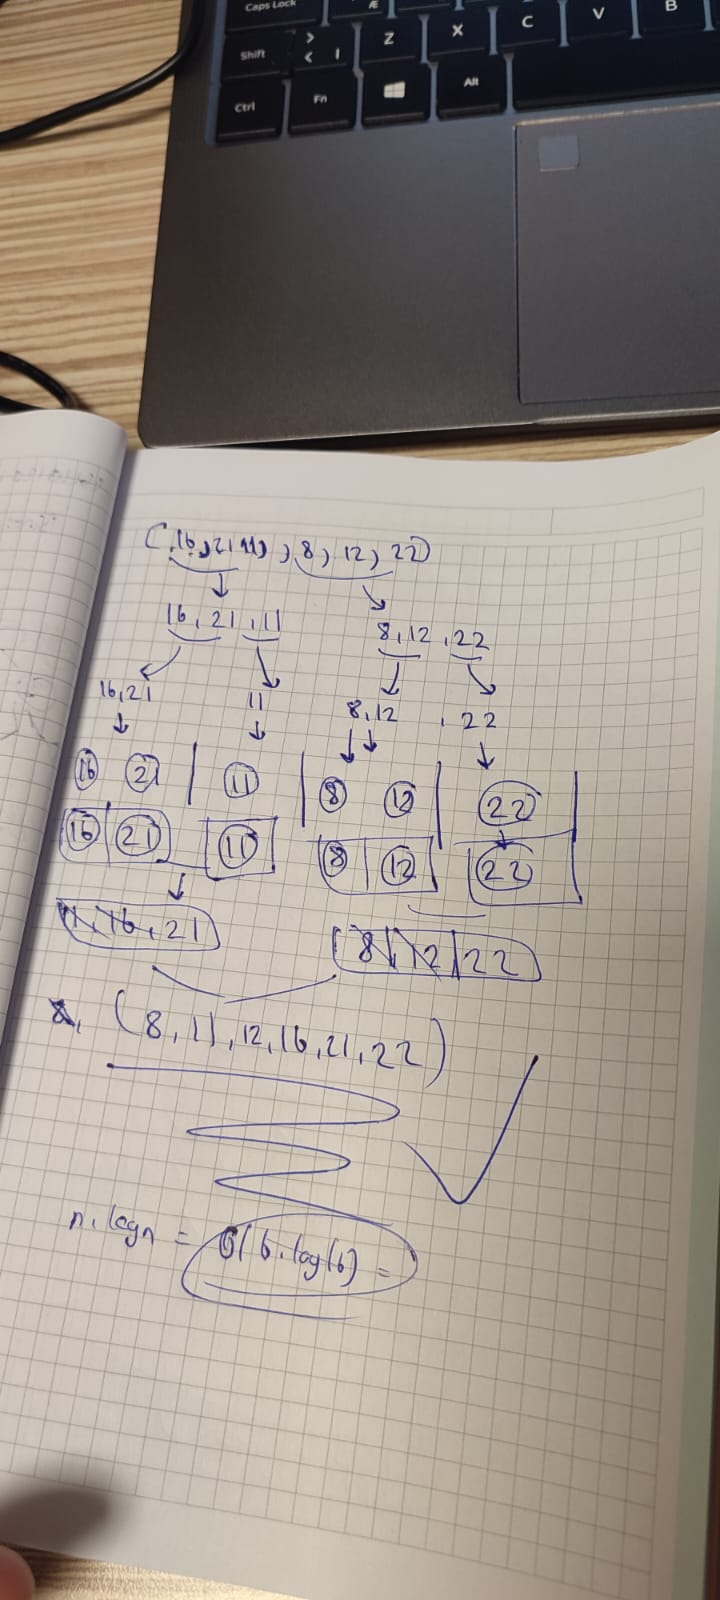 Caps Lock Æ
Shift > < | Z X C V B
Ctrl Fn Alt
(16, 21, 11, 8, 12, 22)
16, 21, 11 8, 12, 22
16, 21 11 8, 12, 22
16 21 | 11 | 8 12 | 22
16 21 11 8 12 22
11, 16, 21 8 | 12 | 22
8, (8, 11, 12, 16, 21, 22)
n. logn = 6(6.log(6) =